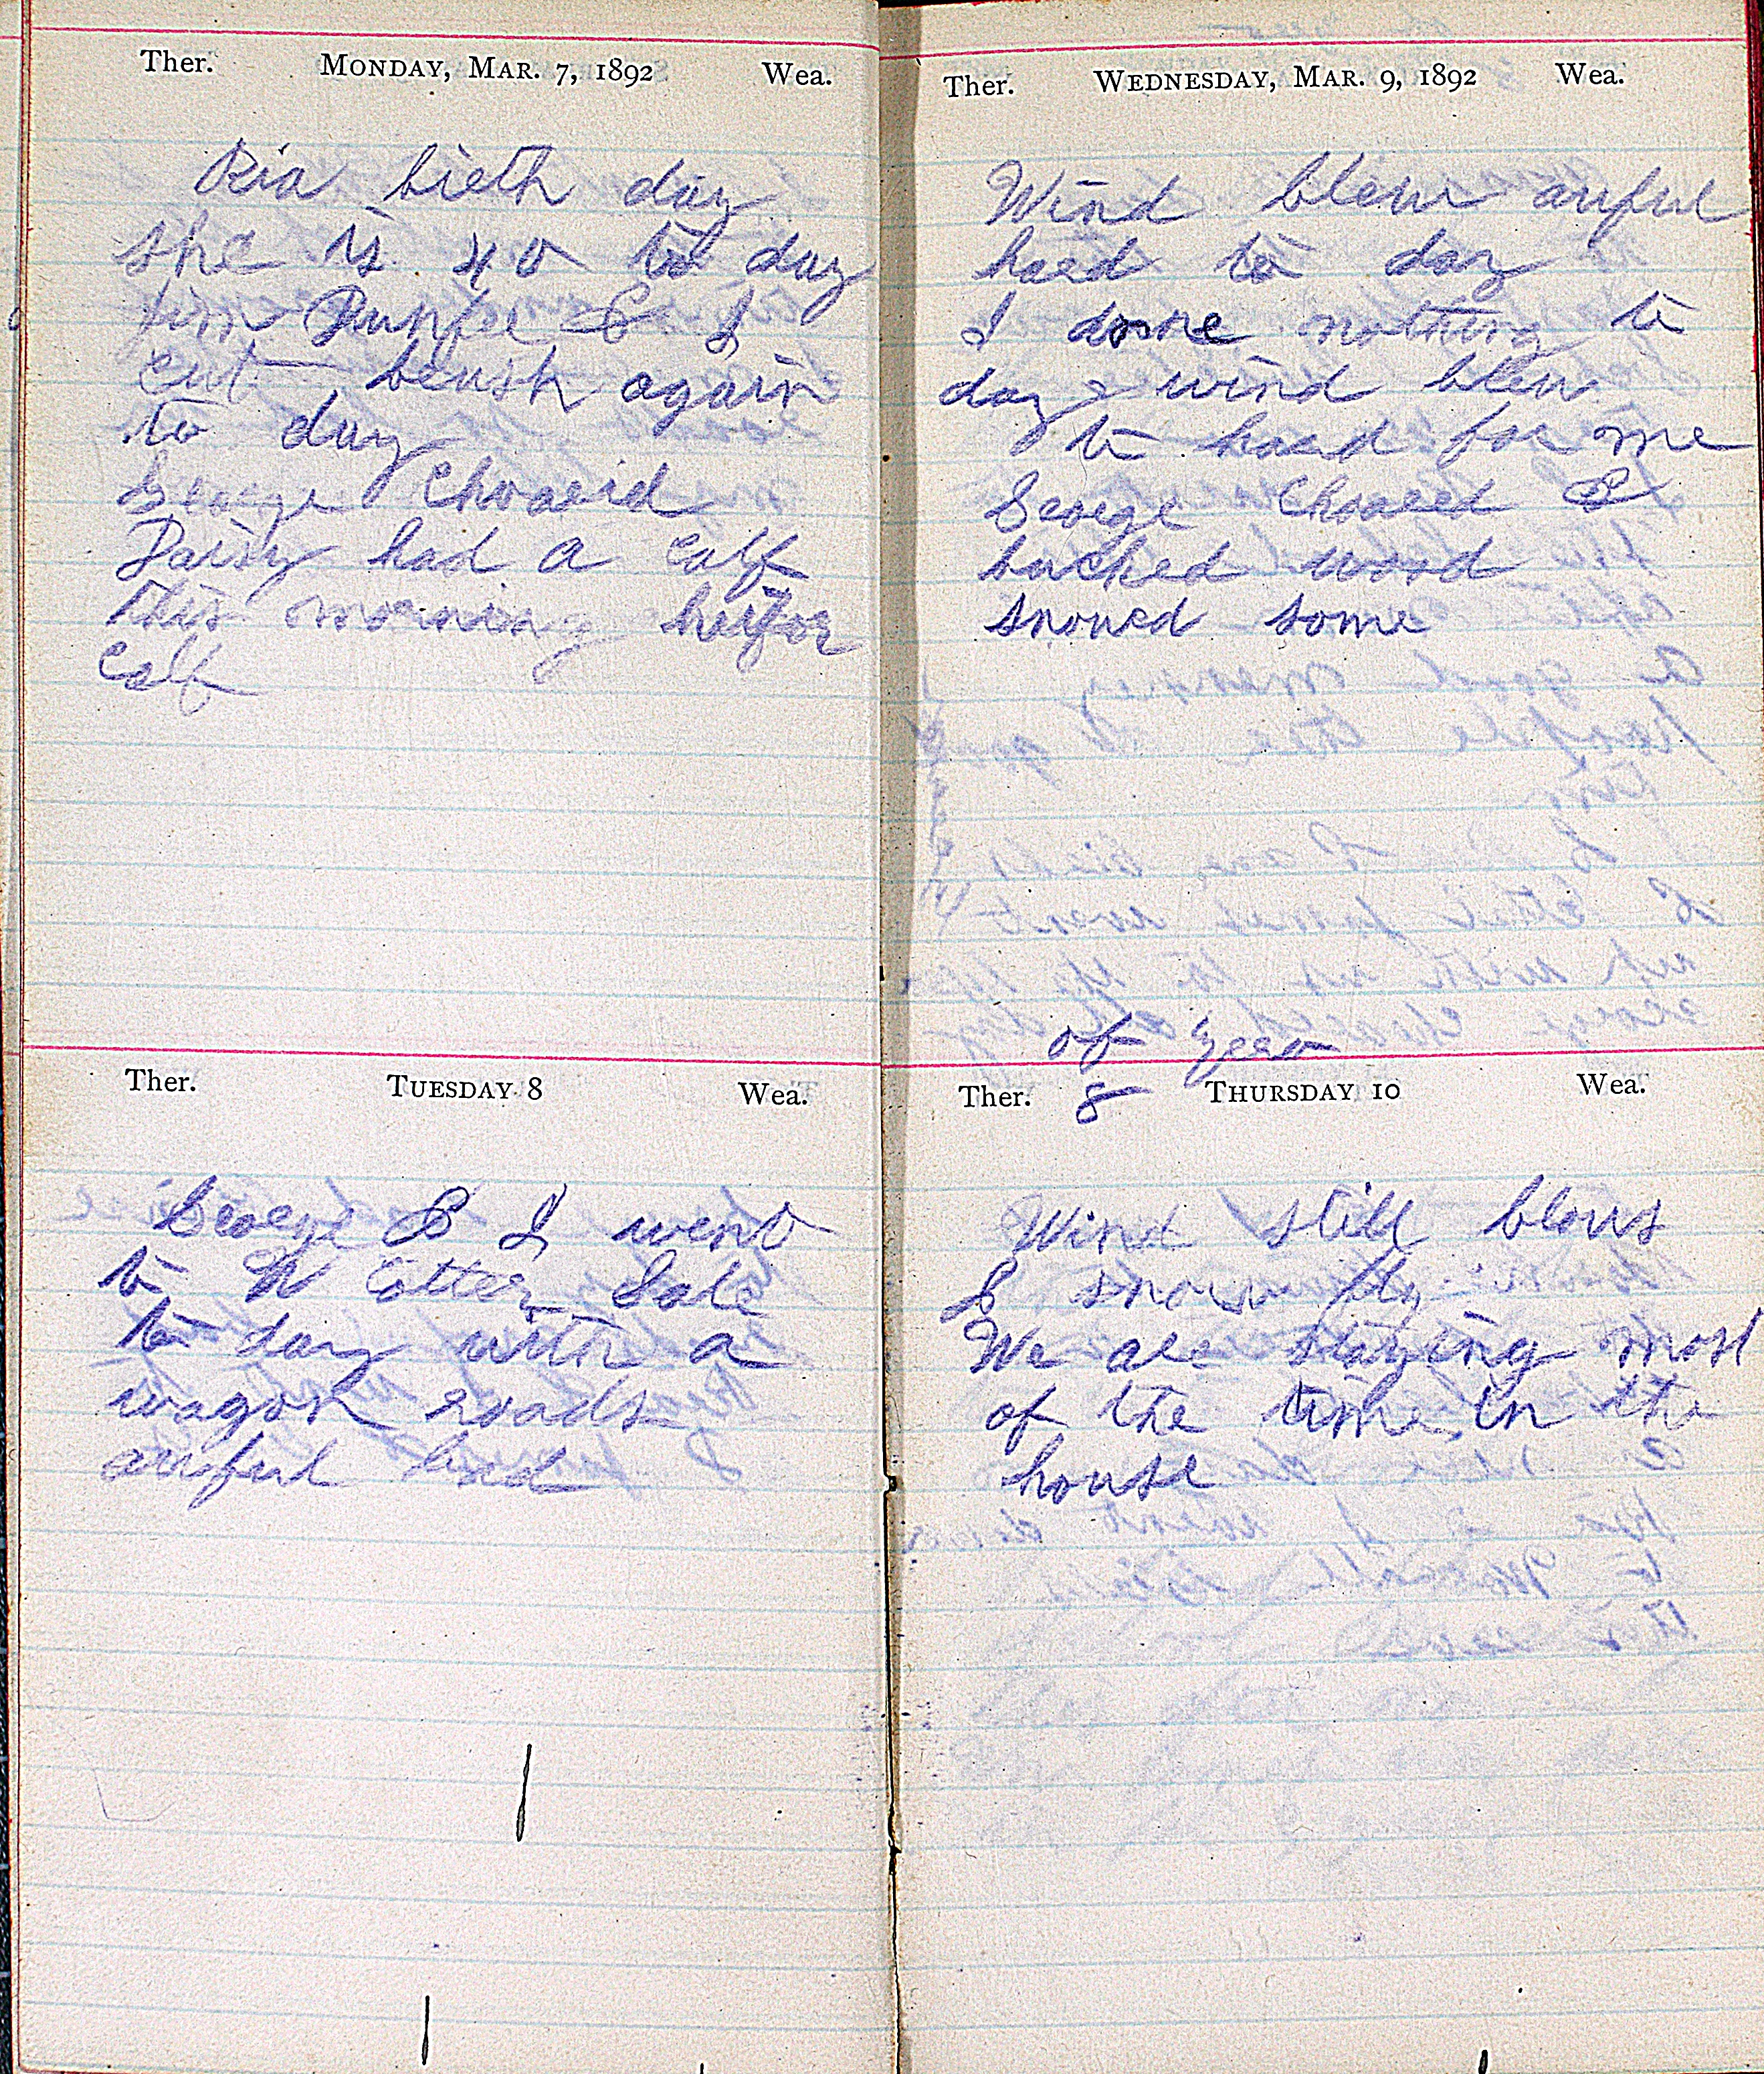 Ther. MONDAY, MAR. 7, 1892 Wea.
Ria birth day
she is 40 to day
Jim & I
cut brush again
to day
George Choared
Daisy had a calf
this morning heifor
Calf
Ther. TUESDAY 8 Wea.
George & I went
to Cotter Sale
to day with a
wagon roads
awful bad
Ther. WEDNESDAY, MAR. 9, 1892 Wea.
Wind blew awful
hard to day
I done nothing to
day wind blew
to hard for me
George Choared &
bucked wood
snowed some
of year
Ther. 8 THURSDAY 10 Wea.
Wind still blows
& snow fly
We are staying most
of the time in the
house